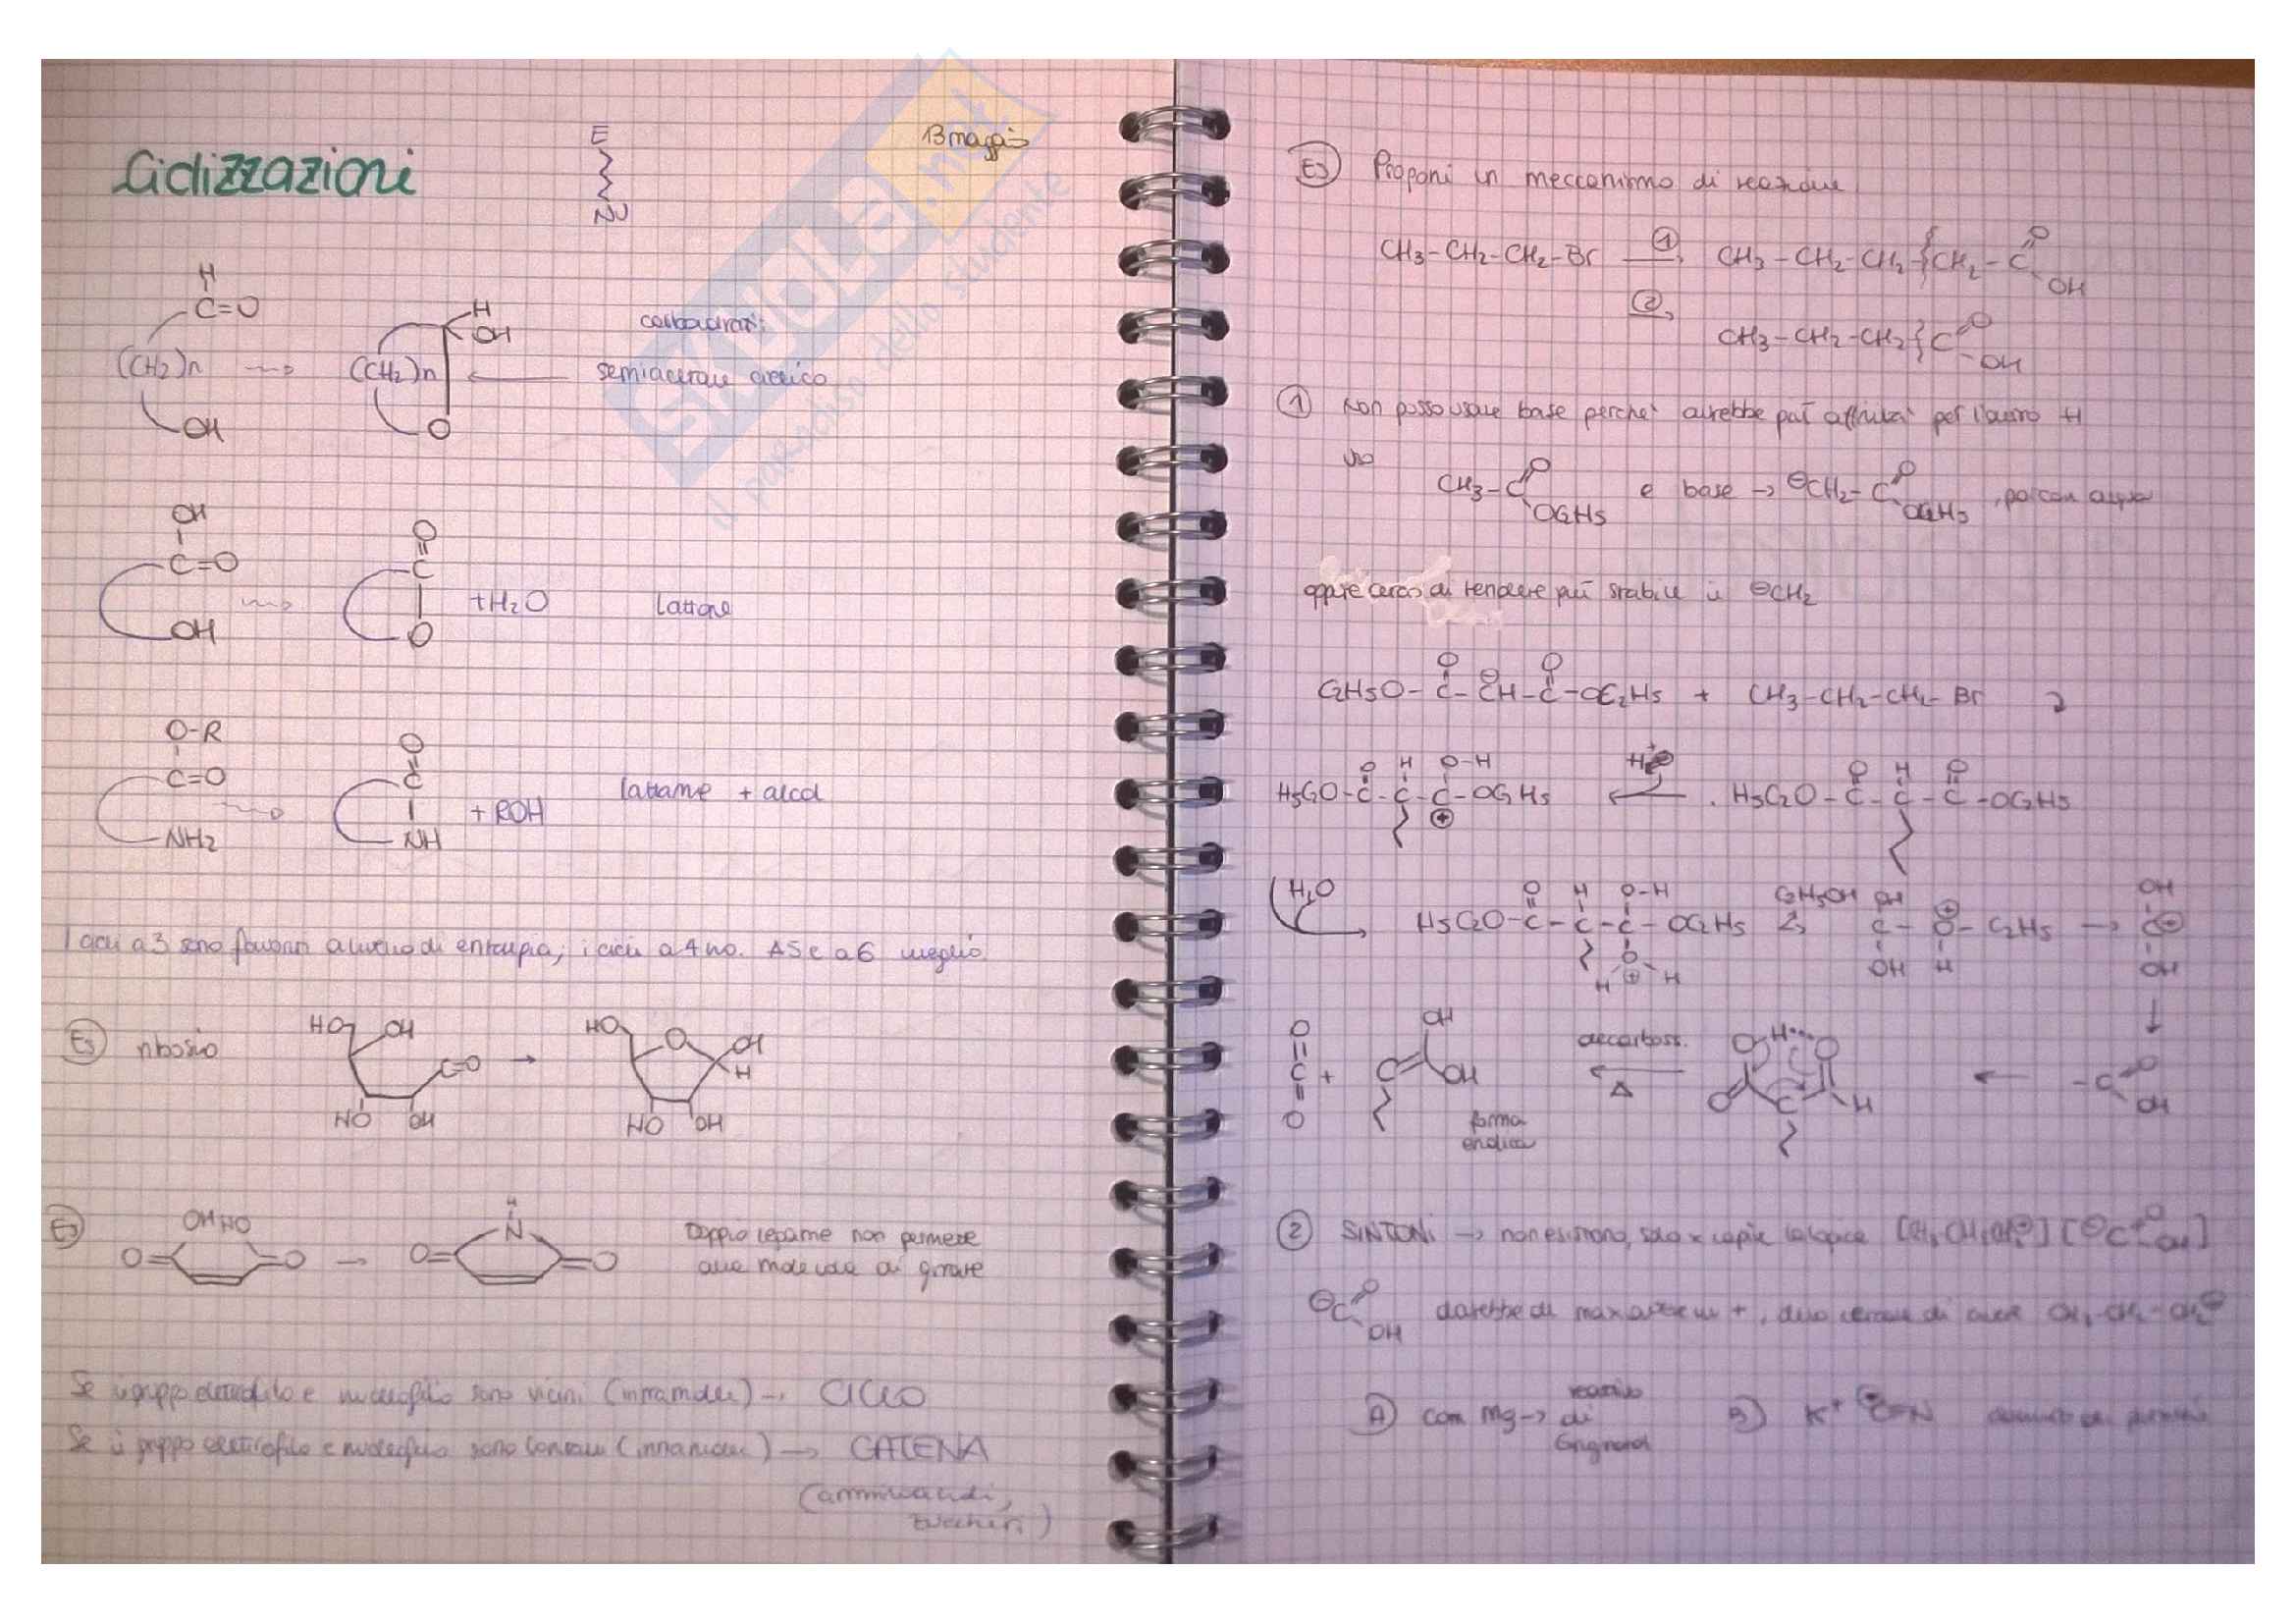 Ciclizzazioni
E
NU
13 maggio
H
C=O
(CH2)n
OH
H
OH
(CH2)n
O
carboidrati:
semiacetale ciclico
OH
C=O
OH
O
C
O
+H2O
lattone
O-R
C=O
NH2
O
C
NH
+ ROH
lattame + alcol
I cicli a 3 sono favoriti a livello di entropia; i cicli a 4 no. A 5 e a 6 meglio.
Es ribosio
HO OH
C=O
HO OH
HO O OH
H
HO OH
Es
OH HO
O O
H
N
O O
Doppio legame non permette
alla molecola di girare
Se il gruppo elettrofilo e nucleofilo sono vicini (intramolec) → CICLO
Se il gruppo elettrofilo e nucleofilo sono lontani → CATENA
(amminoacidi,
zuccheri)
Es Proponi un meccanismo di reazione
CH3-CH2-CH2-Br ① CH3-CH2-CH2 CH2-C O
OH
②
CH3-CH2-CH2 C O
OH
① Non posso usare base perché avrebbe più affinità per l'altro H
uso CH3-C O OC2H5 e base → ⊖CH2-C O OC2H5, poi con acqua
oppure cerco di rendere più stabile il ⊖CH2
C2H5O-C-CH-C-OC2H5 + CH3-CH2-CH2-Br
H5C2O-C-C-C-OC2H5 H5C2O-C-C-C-OC2H5
H2O H5C2O-C-C-C-OC2H5 C2H5OH C-O-C2H5 →
O=C=O + C OH OH
decarboss.
Δ
-C O OH
forma
enolica
② SINTONI → non esistono, solo x capire la logica
⊖C O OH
A) con Mg → reattivo
di
Grignard
B) K+ ⊖C≡N
SKUOLA.net
il paradiso dello studente